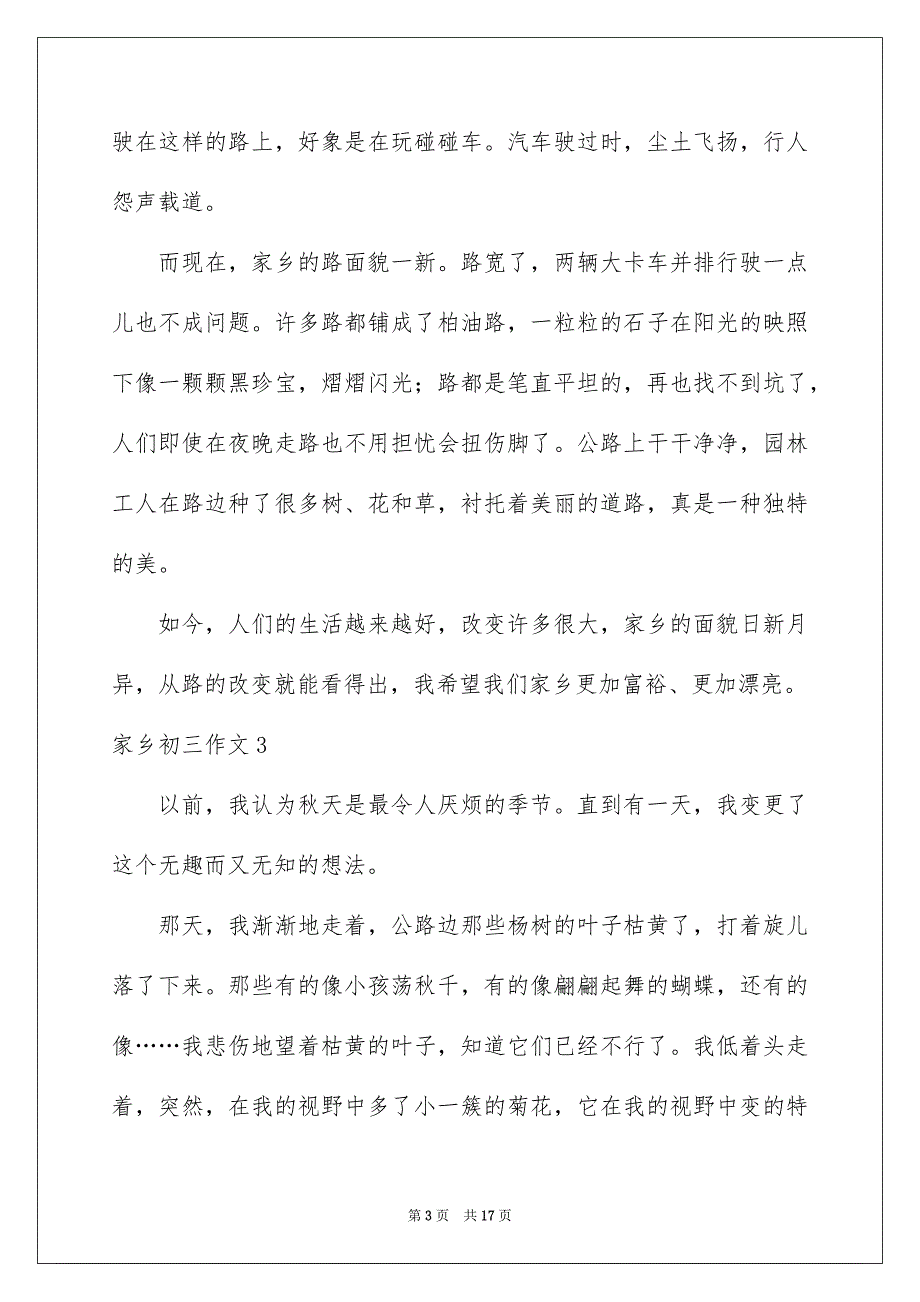 驶在这样的路上，好象是在玩碰碰车。汽车驶过时，尘土飞扬，行人
怨声载道。
而现在，家乡的路面貌一新。路宽了，两辆大卡车并排行驶一点
儿也不成问题。许多路都铺成了柏油路，一粒粒的石子在阳光的映照
下像一颗颗黑珍宝，熠熠闪光；路都是笔直平坦的，再也找不到坑了，
人们即使在夜晚走路也不用担忧会扭伤脚了。公路上干干净净，园林
工人在路边种了很多树、花和草，衬托着美丽的道路，真是一种独特
的美。
如今，人们的生活越来越好，改变许多很大，家乡的面貌日新月
异，从路的改变就能看得出，我希望我们家乡更加富裕、更加漂亮。
家乡初三作文 3
以前，我认为秋天是最令人厌烦的季节。直到有一天，我变更了
这个无趣而又无知的想法。
那天，我渐渐地走着，公路边那些杨树的叶子枯黄了，打着旋儿
落了下来。那些有的像小孩荡秋千，有的像翩翩起舞的蝴蝶，还有的
像……我悲伤地望着枯黄的叶子，知道它们已经不行了。我低着头走
着，突然，在我的视野中多了小一簇的菊花，它在我的视野中变的特
第 3 页 共 17 页